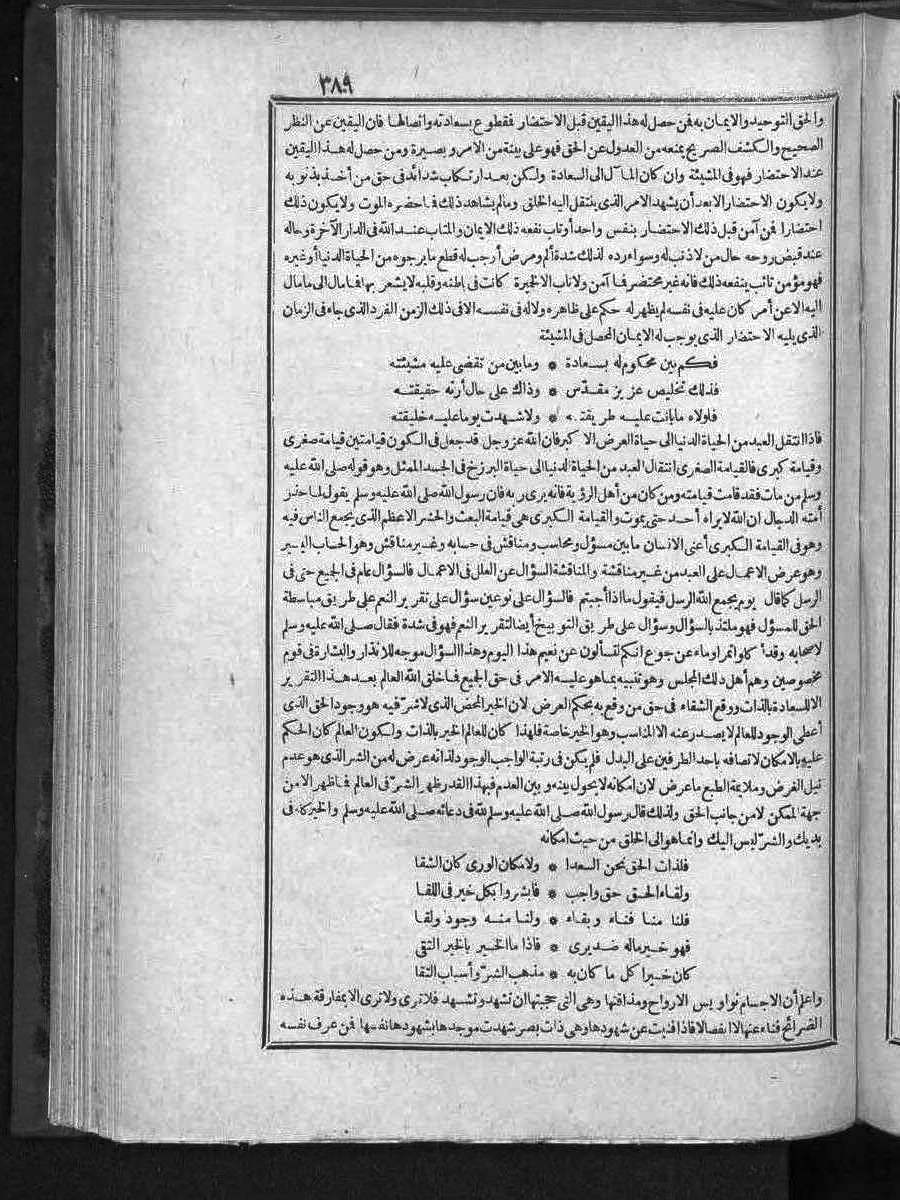 ٣٨٩
والحق التوحيد والايمان به فمن حصل له هذا اليقين قبل الاحتضار فقطوع بسعادته واتصالها فان اليقين عن النظر
الصحيح والكشف الصريح يمنعه من العدول عن الحق فهو على بينة من الامر وبصيرة ومن حصل له هذا اليقين
عند الاحتضار فهو فى المشيئة وان كان المآل الى السعادة ولكن بعد ارتكاب شدائد فى حق من أخذ بذنوبه
ولا يكون الاحتضار الا بعد أن يشهد الامر الذى ينتقل اليه الخلق ومالم يشاهد ذلك فما حضره الموت ولا يكون ذلك
احتضارا فمن آمن قبل ذلك الاحتضار بنفس واحد أو تاب نفعه ذلك الايمان والمتاب عند الله فى الدار الآخرة وحاله
عند قبض روحه حال من لا ذنب له وسواء رده لذلك شدة ألم ومرض أوجب له قطع ما يرجوه من الحياة الدنيا أو غيره
فهو مؤمن تائب ينفعه ذلك فانه غير محتضر فما آمن ولا تاب الا لخميرة كانت فى باطنه وقلبه لا يشعر بها فما مال الى ما مال
اليه الا عن أمر كان عليه فى نفسه لم يظهر له حكم على ظاهره ولا له فى نفسه الا فى ذلك الزمن الفرد الذى جاء فى الزمان
الذى يليه الاحتضار الذى يوجب له الايمان المحصل فى المشيئة
فكم بين محكوم له بسعادة * وما بين من تقضى عليه مشيئته
فذلك تخليص عزيز مقدّس * وذاك على حال أرته حقيقته
فلولاه ما بانت عليه طريقته * ولا شهدت يوما عليه خليقته
فاذا انتقل العبد من الحياة الدنيا الى حياة العرض الاكبر فان الله عز وجل قد جعل فى الكون قيامتين قيامة صغرى
وقيامة كبرى فالقيامة الصغرى انتقال العبد من الحياة الدنيا الى حياة البرزخ فى الجسد الممثل وهو قوله صلى الله عليه
وسلم من مات فقد قامت قيامته ومن كان من أهل الرؤية فانه يرى ربه فان رسول الله صلى الله عليه وسلم يقول لما حذر
أمته الدجال ان الله لا يراه أحد حتى يموت والقيامة الكبرى هى قيامة البعث والحشر الاعظم الذى يجمع الناس فيه
وهو فى القيامة الكبرى أعنى الانسان ما بين مسؤل ومحاسب ومناقش فى حسابه وغير مناقش وهو الحساب اليسير
وهو عرض الاعمال على العبد من غير مناقشة والمناقشة السؤال عن العلل فى الاعمال فالسؤال عام فى الجميع حتى فى
الرسل كما قال يوم يجمع الله الرسل فيقول ماذا أجبتم فالسؤال على نوعين سؤال على تقرير النعم على طريق مباسطة
الحق للمسؤل فهو ملتذ بالسؤال وسؤال على طريق التوبيخ أيضا لتقرير النعم فهو فى شدة فقال صلى الله عليه وسلم
لاصحابه وقد أكلوا تمرا وماء عن جوع انكم لتسألون عن نعيم هذا اليوم وهذا السؤال موجه للانذار والبشارة فى قوم
مخصوصين وهم أهل ذلك المجلس وهو تنبيه بما هو عليه الامر فى حق الجميع فما خلق الله العالم بعد هذا التقرير
الا للسعادة بالذات ووقع الشقاء فى حق من وقع به بحكم العرض لان الخير المحض الذى لا شرّ فيه هو وجود الحق الذى
أعطى الوجود للعالم لا يصدر عنه الا المناسب وهو الخير خاصة فلهذا كان للعالم الخير بالذات ولكون العالم كان الحكم
عليه بالامكان لاتصافه باحد الطرفين على البدل فلم يكن فى رتبة الواجب الوجود لذاته عرض له من الشر الذى هو عدم
نيل الغرض وملايمة الطبع ما عرض لان امكانه لا يحول بينه وبين العدم فبهذا القدر ظهر الشرّ فى العالم فما ظهر الا من
جهة الممكن لا من جانب الحق ولذلك قال رسول الله صلى الله عليه وسلم لله فى دعائه صلى الله عليه وسلم والخير كله فى
يديك والشرّ ليس اليك وانما هو الى الخلق من حيث امكانه
فلذات الحق نحن السعدا * ولا مكان الورى كان الشقا
ولقاء الحق حق واجب * فابشروا بكل خير فى اللقا
فلنا منا فناء وبقاء * ولنا منه وجود ولقا
فهو خير ماله ضد يرى * فاذا ما الخير بالخير التقى
كان خيرا كل ما كان به * مذهب الشرّ وأسباب التقا
واعلم أن الاجسام نواويس الارواح ومذاقتها وهى التى حجبتها ان تشهد وتشهد فلا ترى ولا ترى الا بمفارقة هذه
الضرائح فناء عنها لا انفصالا فاذا فنيت عن شهودها وهى ذات بصر شهدت موجدها بشهودها نفسها فمن عرف نفسه